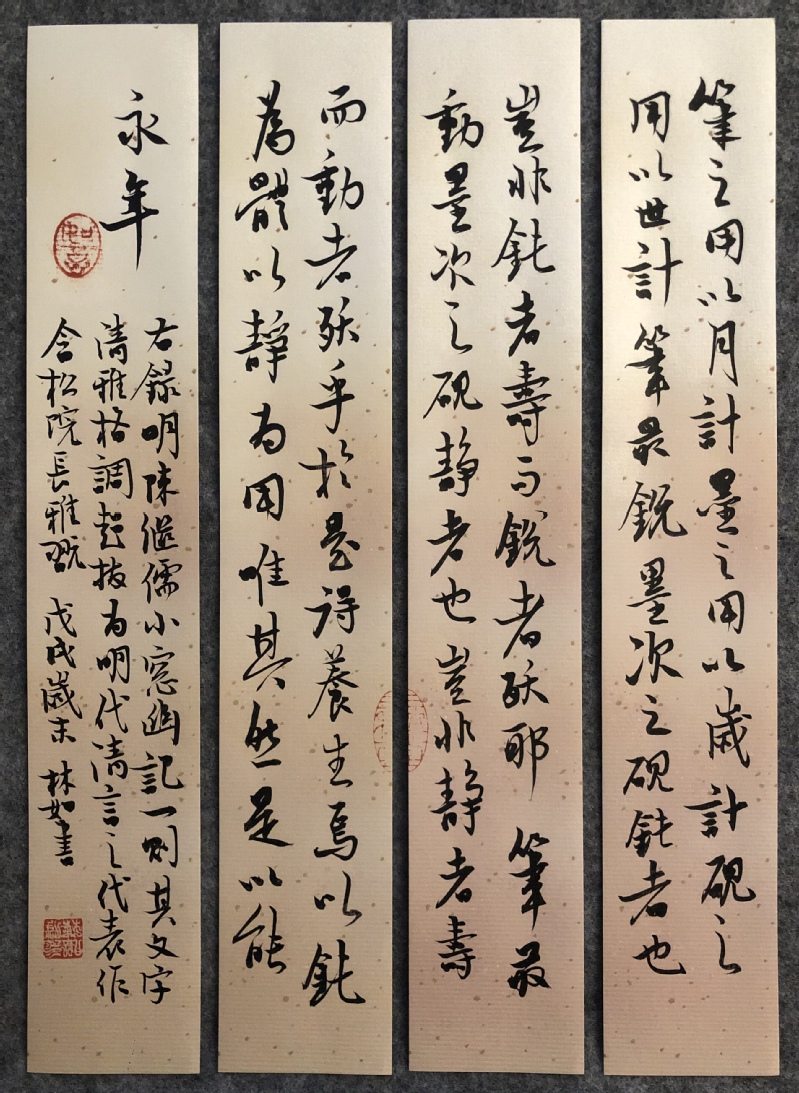 筆之用以月計墨之用以歲計硯之
用以世計筆最銳墨次之硯鈍者也
豈非鈍者壽而銳者殀耶筆最
動墨次之硯静者也豈非静者壽
而動者殀乎於是得養生焉以鈍
為體以静为用唯其然是以能
永年
右錄明陳繼儒小窓幽記一則其文字
清雅格調超拔为明代清言之代表作
含松院長雅翫 戊戌歲末 林如書
如意